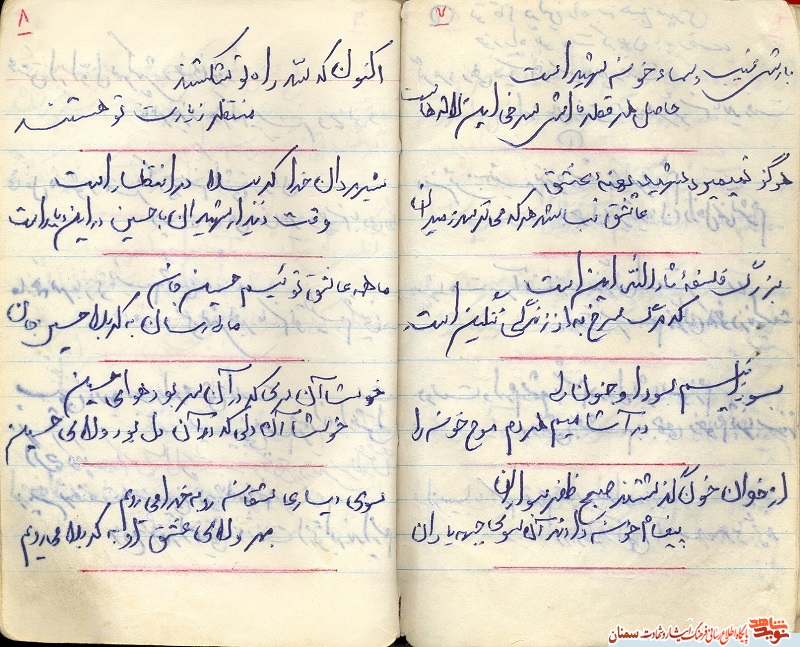 ۷
بارش غیب و سماء خون شهید است
حاصل هر قطره اش سرخی این لاله هاست
هرگز نمیمیرد شهید عشق
عاشق نب باشد هر که می ترسد ز میدان
بزرگ فلسفهٔ ثارالله این است
که مرگ سرخ به از زندگی ننگین است
سودا و جنون را
در آشامیم هر دم موج خون را
از خوان خون گذشتند صبح ظفر سواران
پیغام خون دادند آن سوی جبهه یاران
۸
اکنون که سد راه تو شکستند
منتظر زیارت تو هستند
شیر مردان خدا کربلا در انتظار است
وقت دیدار شهیدان با حسین در این دیار است
ما همه عاشق توئیم حسین جان
ما را رسان به کربلا حسین جان
خوشا آن سری که در آن سر بود هوای حسین
خوشا آن دلی که در آن دل بود ولای حسین
سوی دیار عاشقان رو به خدا می رویم
بهر ولای عشق او به کربلا می رویم
نوید شاهد
پایگاه اطلاع رسانی فرهنگ ایثار و شهادت سمنان